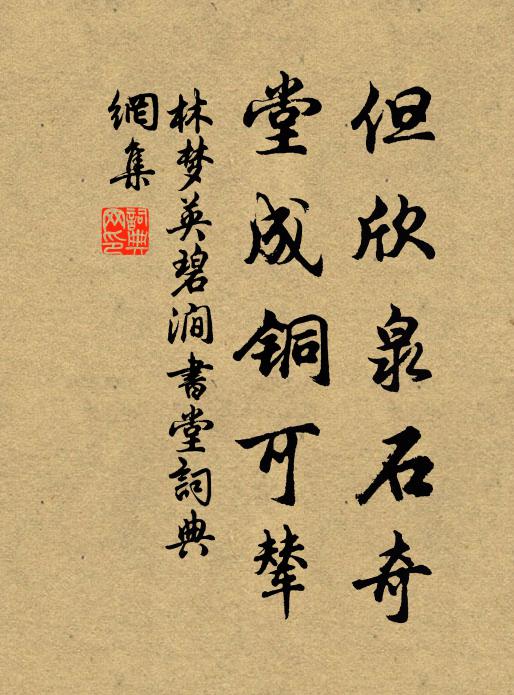 但欣泉石奇
堂成铜可辇
林梦英碧涧书堂詞典
網集
詞典网印